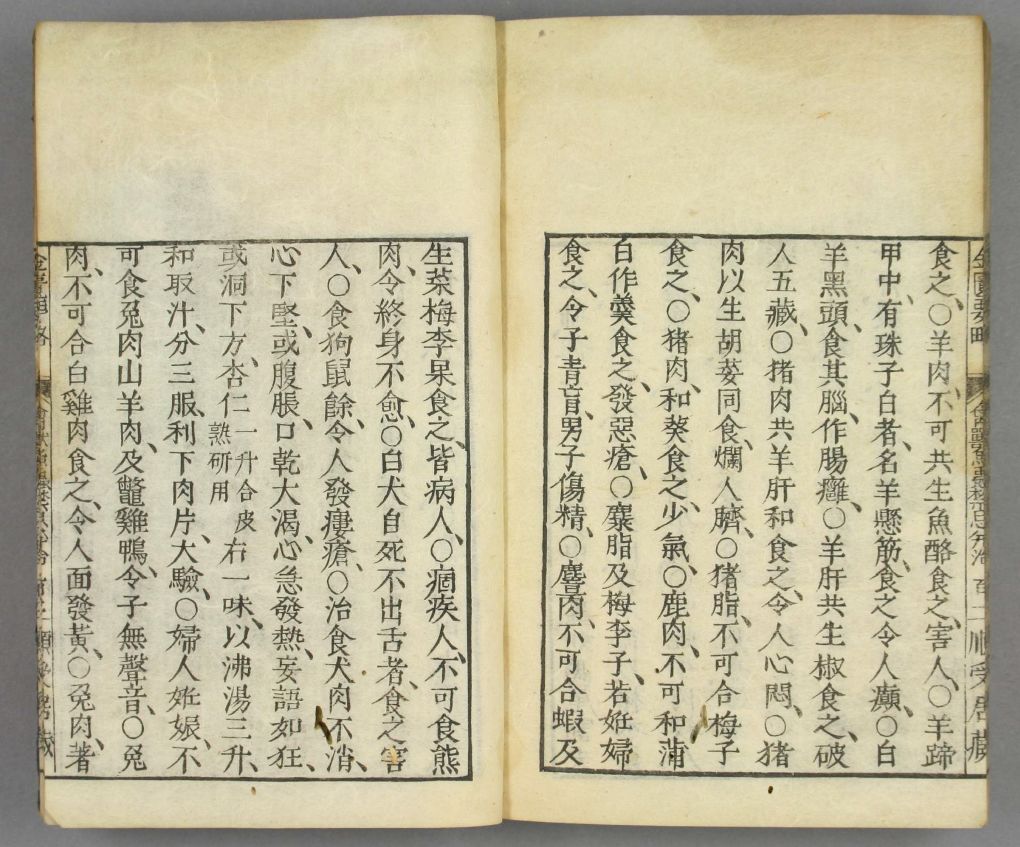 金匱要略
禽獸魚蟲禁忌并治
順受居藏
食之、○羊肉、不可共生魚酪食之、害人、○羊蹄
甲中、有珠子白者、名羊懸筋、食之令人癲、○白
羊黑頭、食其腦、作腸癰、○羊肝共生椒食之、破
人五藏、○猪肉共羊肝和食之、令人心悶、○猪
肉以生胡荽同食、爛人臍、○猪脂、不可合梅子
食之、○猪肉、和葵食之、少氣、○鹿肉、不可和蒲
白作羹食之、發惡瘡、○麋脂及梅李子、若姙婦
食之、令子青盲、男子傷精、○麞肉、不可合蝦及
生菜梅李果食之、皆病人、○痼疾人、不可食熊
肉、令終身不愈、○白犬自死不出舌者、食之害
人、○食狗鼠餘、令人發瘻瘡、○治食犬肉不消、
心下堅、或腹脹、口乾大渴、心急發熱、妄語如狂、
或洞下方、杏仁一升合皮熟研用右一味、以沸湯三升、
和取汁、分三服、利下肉片、大驗、○婦人姙娠、不
可食兎肉山羊肉、及鼈雞鴨、令子無聲音、○兎
肉、不可合白雞肉食之、令人面發黃、○兎肉、著